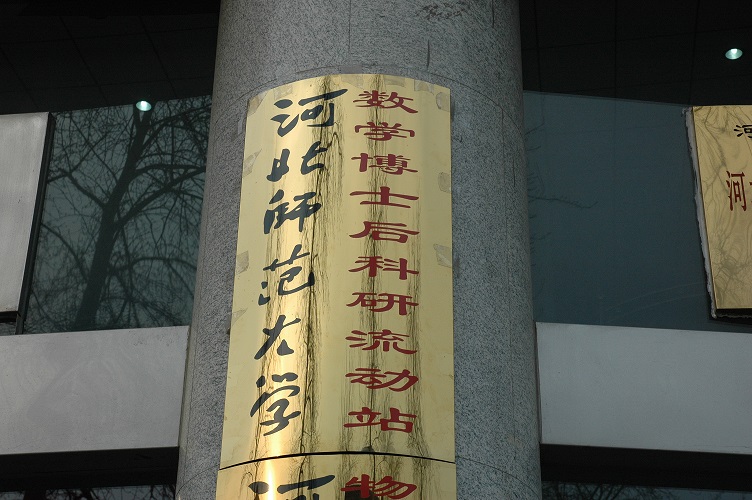 河北师范大学
数学博士后科研流动站
河
物
河
河